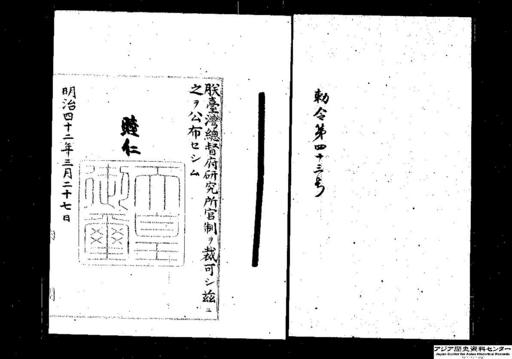 勅令第四十三号
朕臺灣總督府研究所官制ヲ裁可シ茲ニ
之ヲ公布セシム
睦仁
天皇御璽
明治四十二年三月二十七日
アジア歴史資料センター
Japan Center for Asian Historical Records